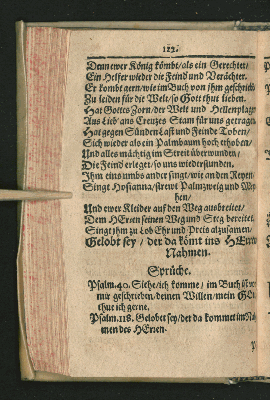 123.
Denn ewer König kömbt / als ein Gerechter /
Ein Helfer wieder die Feind und Verächter.
Er kombt gern / wie im Buch von jhm geschrieb
Zu leiden für die Welt / so Gott thut lieben.
Hat Gottes Zorn / der Welt und Hellenplagen
Aus Lieb' ans Creuzes Stam für uns getragen
Hat gegen Sünden Last und Feinde Toben /
Sich wieder als ein Palmbaum hoch erhoben /
Und alles mächtig im Streit überwunden /
Die Feind erleget / so uns wiederstunden.
Jhm eins umbs ander singt / wie an den Reyen
Singt Hosianna / strewt Palmzweig und
hen /
Und ewer Kleider auff den Weg ausbreitet /
Dem HErren seinen Weg und Steg bereitet.
Singt jhm zu Lob Ehr und Preis alzusamen /
Gelobt sey / der da kömt ins HErren
Nahmen.
Sprüche.
Psalm. 40. Siehe / ich komme / im Buch ist von
mir geschrieben / deinen Willen / mein GOtt
thut ich gerne.
Psalm. 118. Gelobet sey / der da kommet im Na
men des HErren.